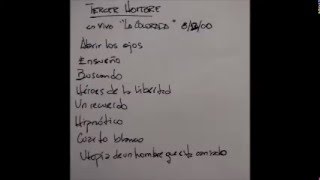 TERCER HOMBRE
en vivo "La Colorada" 8/12/00
Abrir los ojos
Ensueño
Buscando
Héroes de la libertad
Un recuerdo
Hipnótico
Cuarto blanco
Utopía de un hombre que está cansado